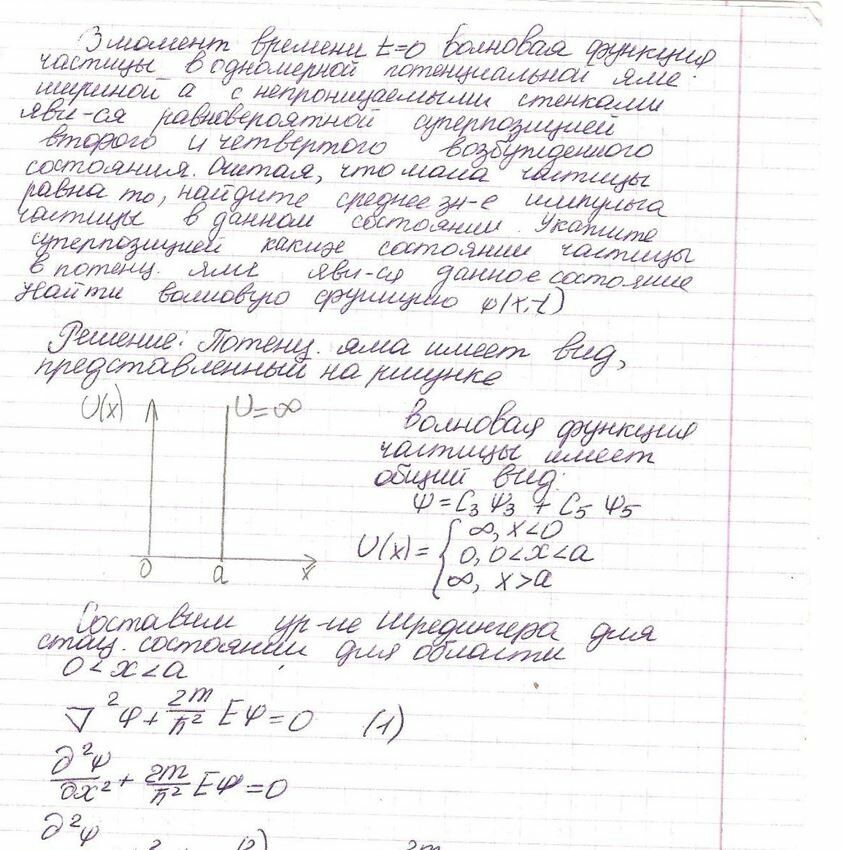 В момент времени t=0 волновая функция
частицы в одномерной потенциальной яме
шириной a с непроницаемыми стенками
яви-ся равновероятной суперпозицией
второго и четвертого возбужденного
состояния. Считая, что масса частицы
равна m₀, найдите среднее зн-е импульса
частицы в данном состоянии. Укажите
суперпозицией каких состоянии частицы
в потенц. яме яви-ся данное состояние
Найти волновую функцию ψ(x,t)
Решение: Потенц. яма имеет вид,
представленный на рисунке
U(x) U=∞
0 a x
Волновая функция
частицы имеет
общий вид:
Ψ=C₃Ψ₃ + C₅Ψ₅
U(x)= { ∞, x<0
0, 0<x<a
∞, x>a
Составим ур-ие Шредингера для
стац. состоянии для области
0<x<a
∇²ψ + 2m/ħ² Eψ=0 (1)
∂²ψ/∂x² + 2m/ħ² Eψ=0
∂²ψ